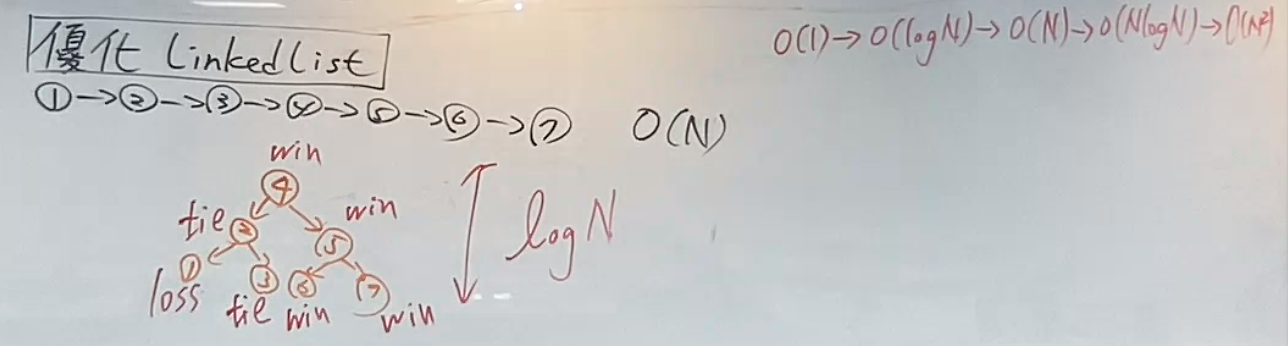 優化 LinkedList
O(1)→O(logN)→O(N)→O(NlogN)→O(N²)
①→②→③→④→⑤→⑥→⑦ O(N)
win
④
tie ② win
⑤
① ③ ⑥ ⑦
loss tie win win
logN